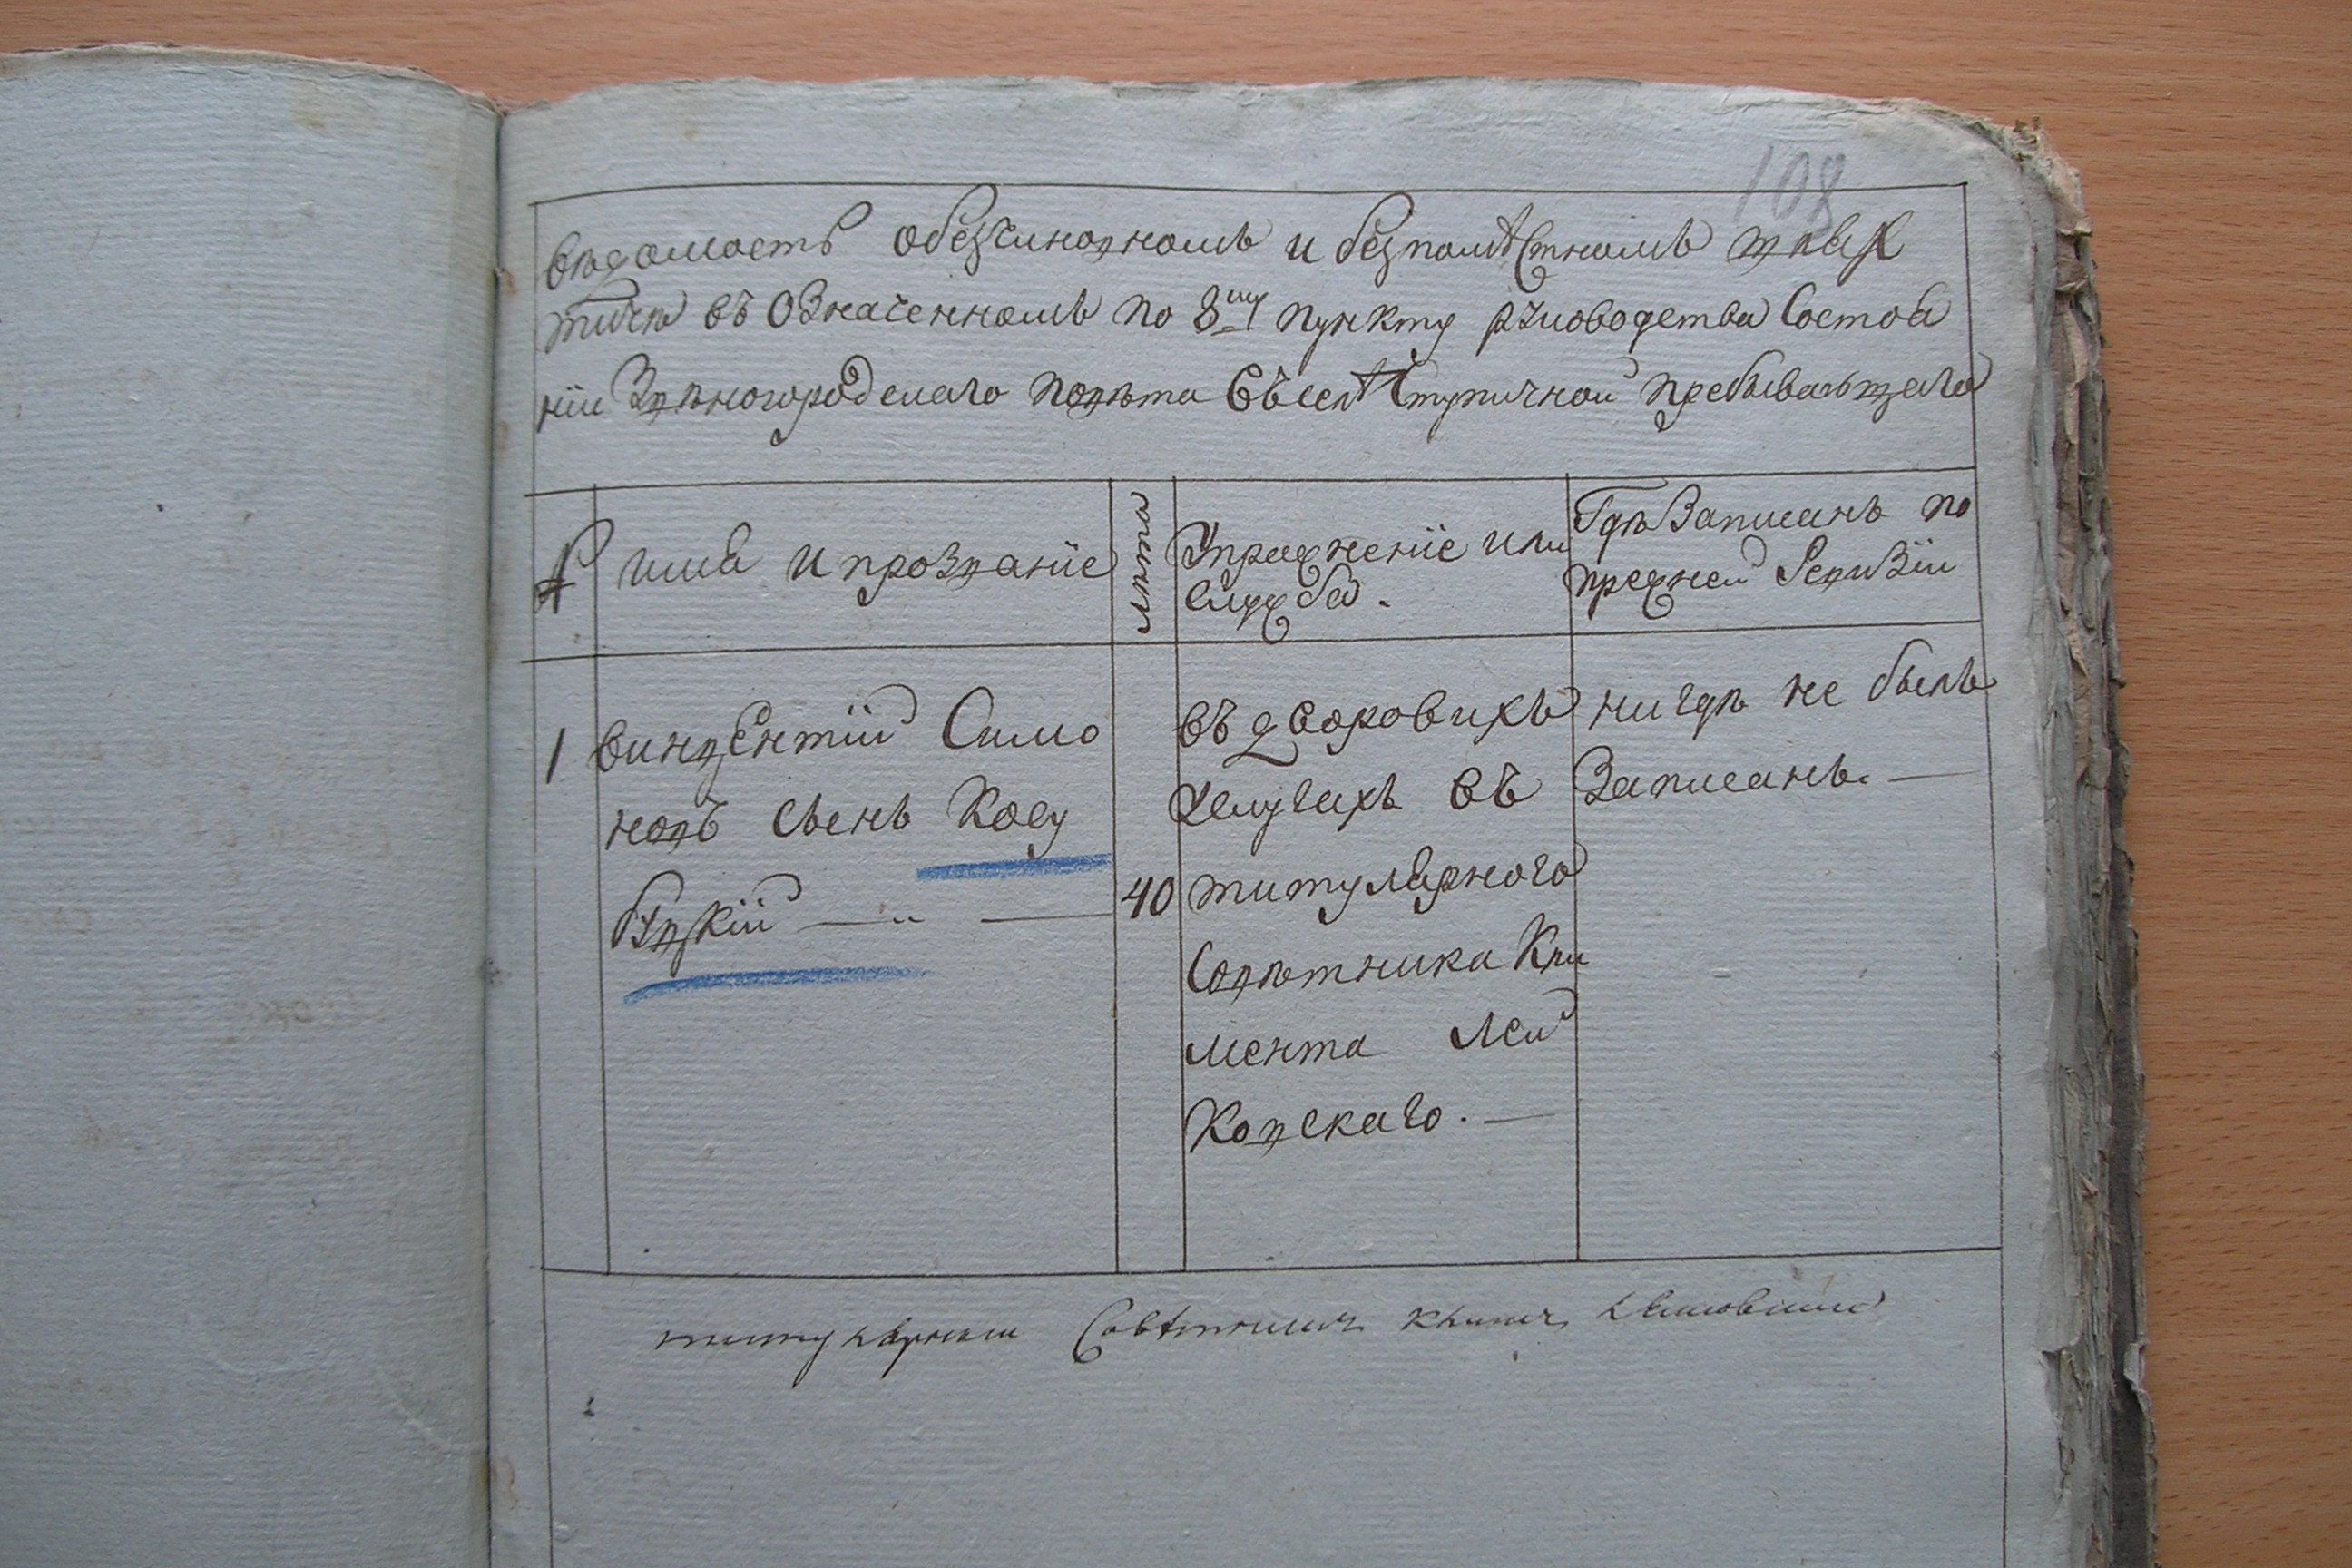 108
Вѣдомость обезчиновномъ и безпомѣстномъ шлях
тичѣ въ Означенномъ по 8му пункту руководства Состоя
нїи Звѣногородскаго повѣта Въселѣ Ступичной пребывающаго
№
имя и прозванїе
Лѣта
Упражненїе или
служба.
Гдѣ Записанъ по
прежней Ревизїи
1
Винцентїй Симо
новъ сынъ Косу
буцкїй
40
въ дворовихъ
услугахъ въ
титулярного
Совѣтника Кли
мента Лей
Ковскаго.
нигдѣ не былъ
Записанъ.
титулярный Совѣтникъ